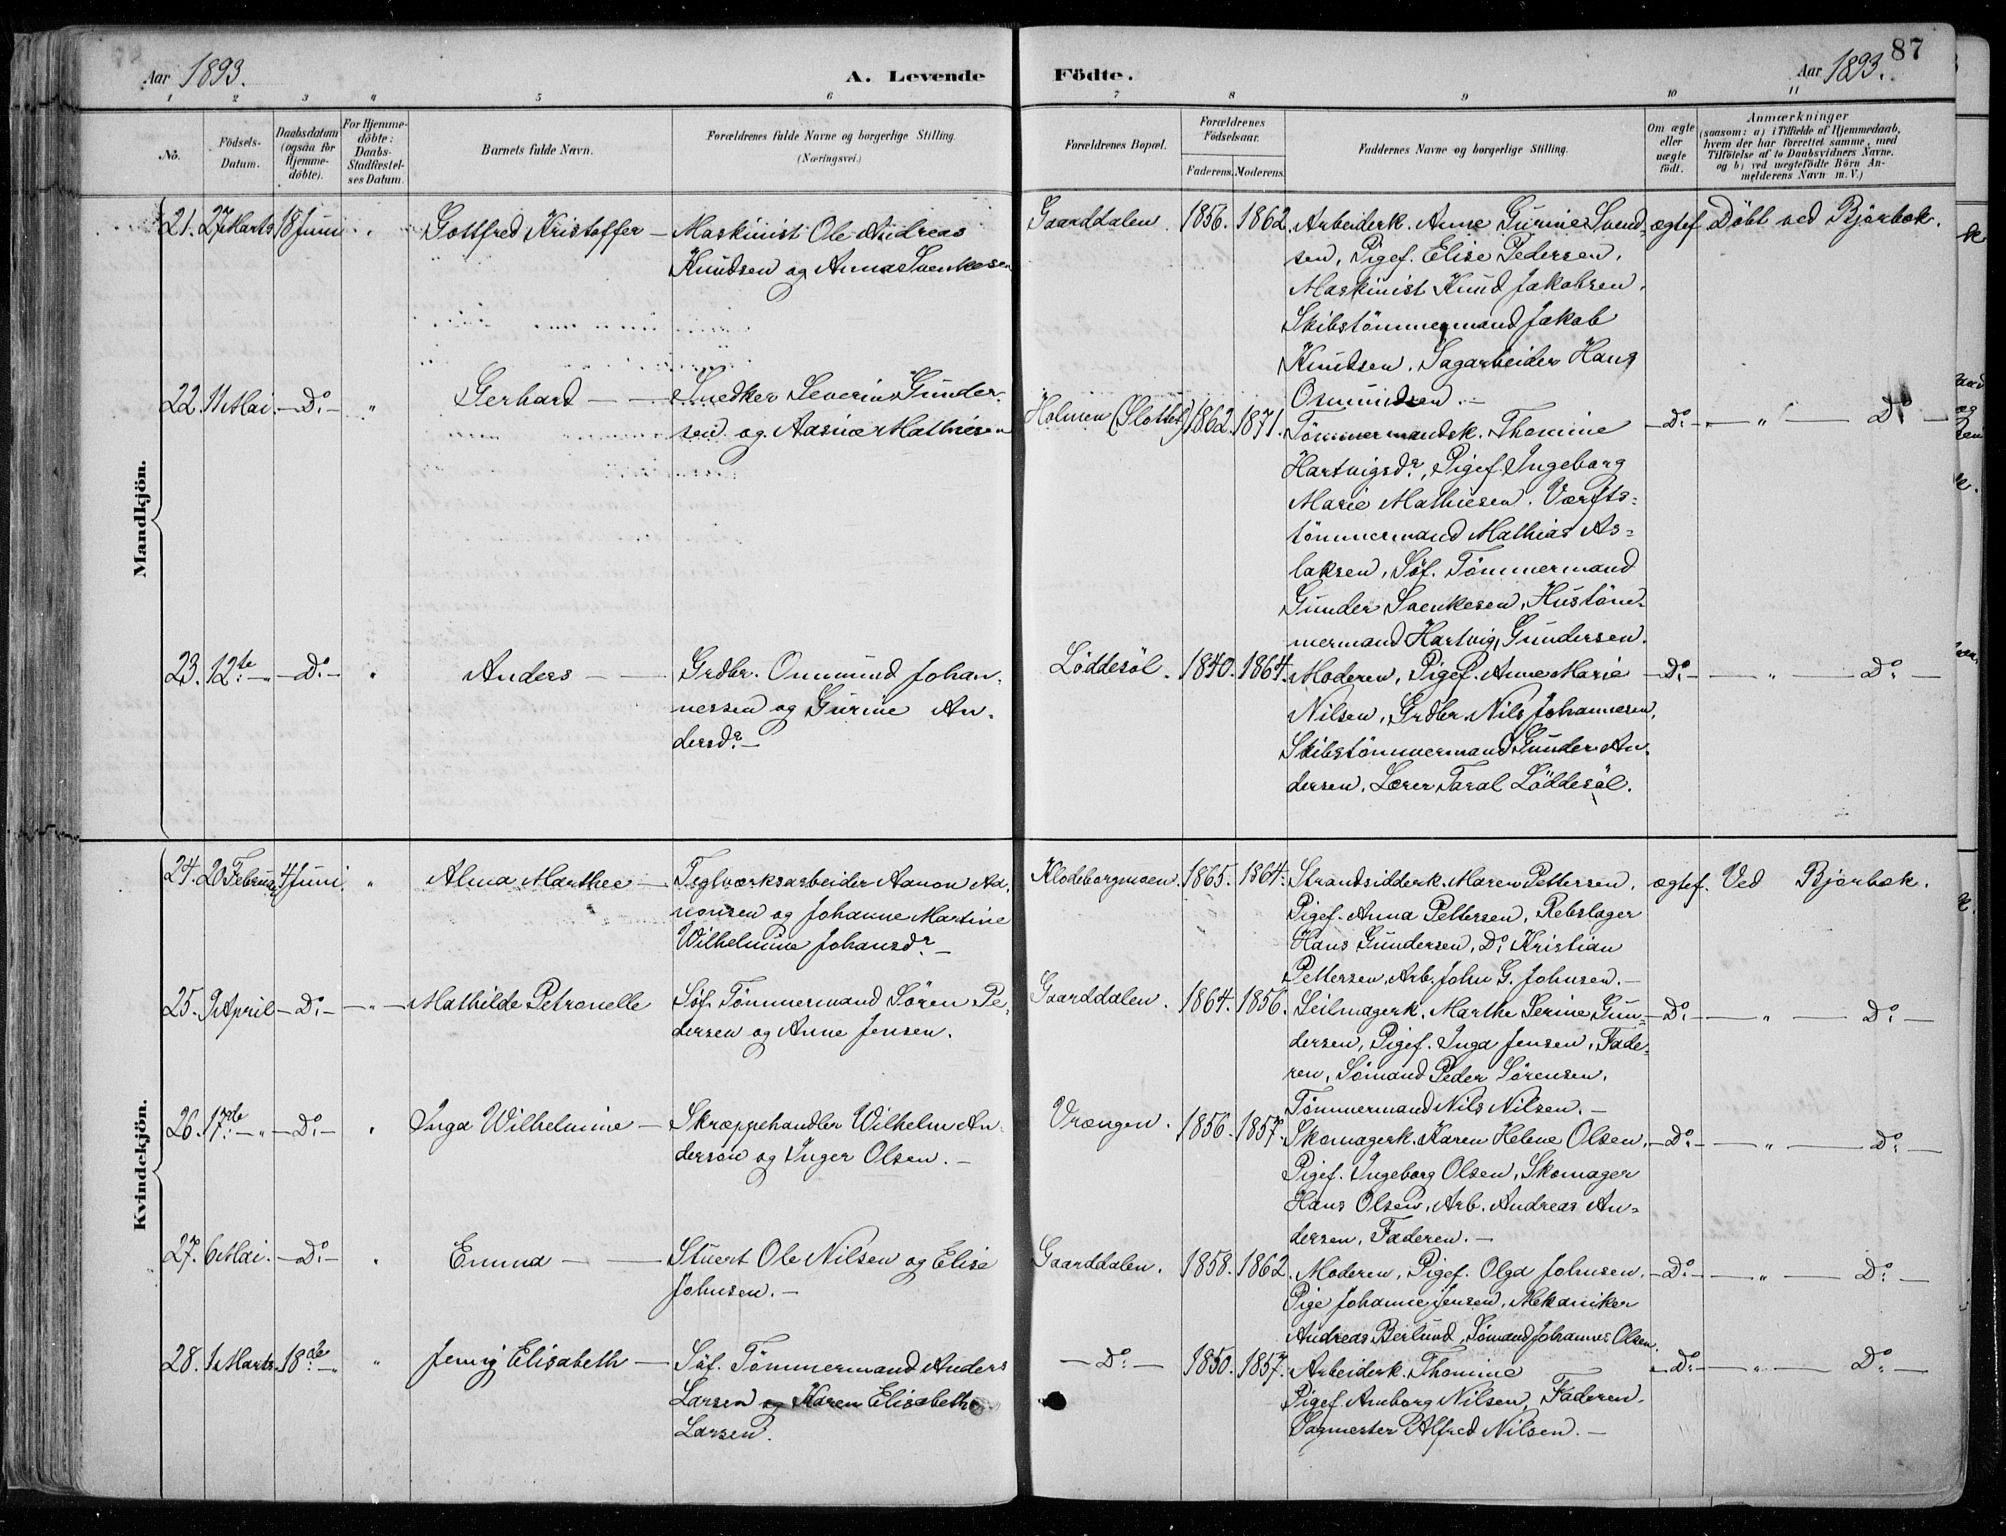 87
Aar 1893.
A. Levende Födte.
Aar 1893.
1 2 3 4 5 6 7 8 9 10 11
No.
Födsels-
Datum.
Daabsdatum
(ogsaa for
Hjemme-
döbte).
For Hjemme-
döbte:
Daabs-
Stadfæstel-
ses Datum.
Barnets fulde Navn.
Forældrenes fulde Navne og borgerlige Stilling.
(Næringsvei.)
Forældrenes Bopæl.
Forældrenes
Födselsaar.
Faderens. Moderens.
Faddernes Navne og borgerlige Stilling.
Om ægte
eller
uægte
födt.
Anmærkninger
(saasom: a) i Tilfælde af Hjemmedaab,
hvem der har forrettet samme, med
Tilföielse af to Daabsvidners Navne.
og b) ved uægtefödte Börn An-
melderens Navn m. V.)
Mandkjön.
21. 27 Marts 18 Juni " Gottfred Kristoffer — Maskinist Ole Andreas
Knudsen og Anna Svenkesen
Gaarddalen. 1856. 1862. Arbeiderk. Anne Gurine Svend- ægtef. Döbt ved Bjorbæk.
sen, Pigef. Elise Pedersen,
Maskinist Knud Jakobsen,
Skibstömmermand Jakob
Knudsen, Sagarbeider Hans
Osmundsen. —
22. 11 Mai. — Do — " Gerhard — — Snedker Severin Gunder-
sen og Aasine Mathiesen
Holmen (Slottet) 1862. 1871. Tömmermandsk. Thomine — Do — " — Do —
Hartvigsdr, Pigef. Ingeborg
Marie Mathiesen, Værfts-
tömmermand Mathias As-
laksen, Söf. Tömmermand
Gunder Svenkesen, Hustöm-
mermand Hartvig Gundersen.
23. 12te — " — Do — " Anders — — Grdbr. Onmund Johan-
nessen og Gurine An-
dersdr —
Löddesöl. 1840. 1864. Moderen, Pigef. Anne Marie — Do — " — Do —
Nilsen, Grdbr. Nils Johannesen,
Skibstömmermand Gunder An-
dersen, Lærer Taral Löddesöl.
Kvindekjön.
24. 20 Februar 4 Juni " Alma Marthee — Teglværksarbeider Aanon Aa-
nonsen og Johanne Martine
Wilhelmine Johansdr —
Klodeborgmoen. 1865. 1864. Strandsidderk. Maren Pettersen, ægtef. Ved Bjorbæk.
Pigef. Anna Pettersen, Rebslager
Hans Gundersen, Do Kristian
Pettersen, Arb. John G. Johnsen. —
25. 9 April — Do — " — Mathilde Petronelle Söf. Tömmermand Sören Pe-
dersen og Anne Jensen.
Gaarddalen. 1864. 1856. Seilmagerk. Marthe Serine Gun- — Do — " — Do —
dersen, Pigef. Inga Jensen, Fade-
ren, Sömand Peder Sörensen,
Tömmermand Nils Nilsen. —
26. 17de — " — Do — " Inga Wilhelmine — Skræppehandler Wilhelm An-
derson og Inger Olsen. —
Vrængen. 1856. 1857. Skomagerk. Karen Helene Olsen, — Do — " — Do —
Pigef. Ingeborg Olsen, Skomager
Hans Olsen, Arb. Andreas An-
dersen, Faderen. —
27. 6 Mai. — Do — " Emma — — Stuert Ole Nilsen og Elise
Johnsen. —
Gaarddalen. 1858. 1862. Moderen, Pigef. Olga Johnsen, — Do — " — Do —
Pige Johanne Jensen, Mekaniker
Andreas Berlund, Sömand Johannes Olsen.
28. 1 Marts 18de — " Jenny Elisabeth — Söf. Tömmermand Anders
Larsen og Karen Elisabeth
Larsen.
— Do — 1850. 1857. Arbeiderk. Thomine — Do — " — Do —
Pigef. Amborg Nilsen, Faderen,
Sagmester Alfred Nilsen. —